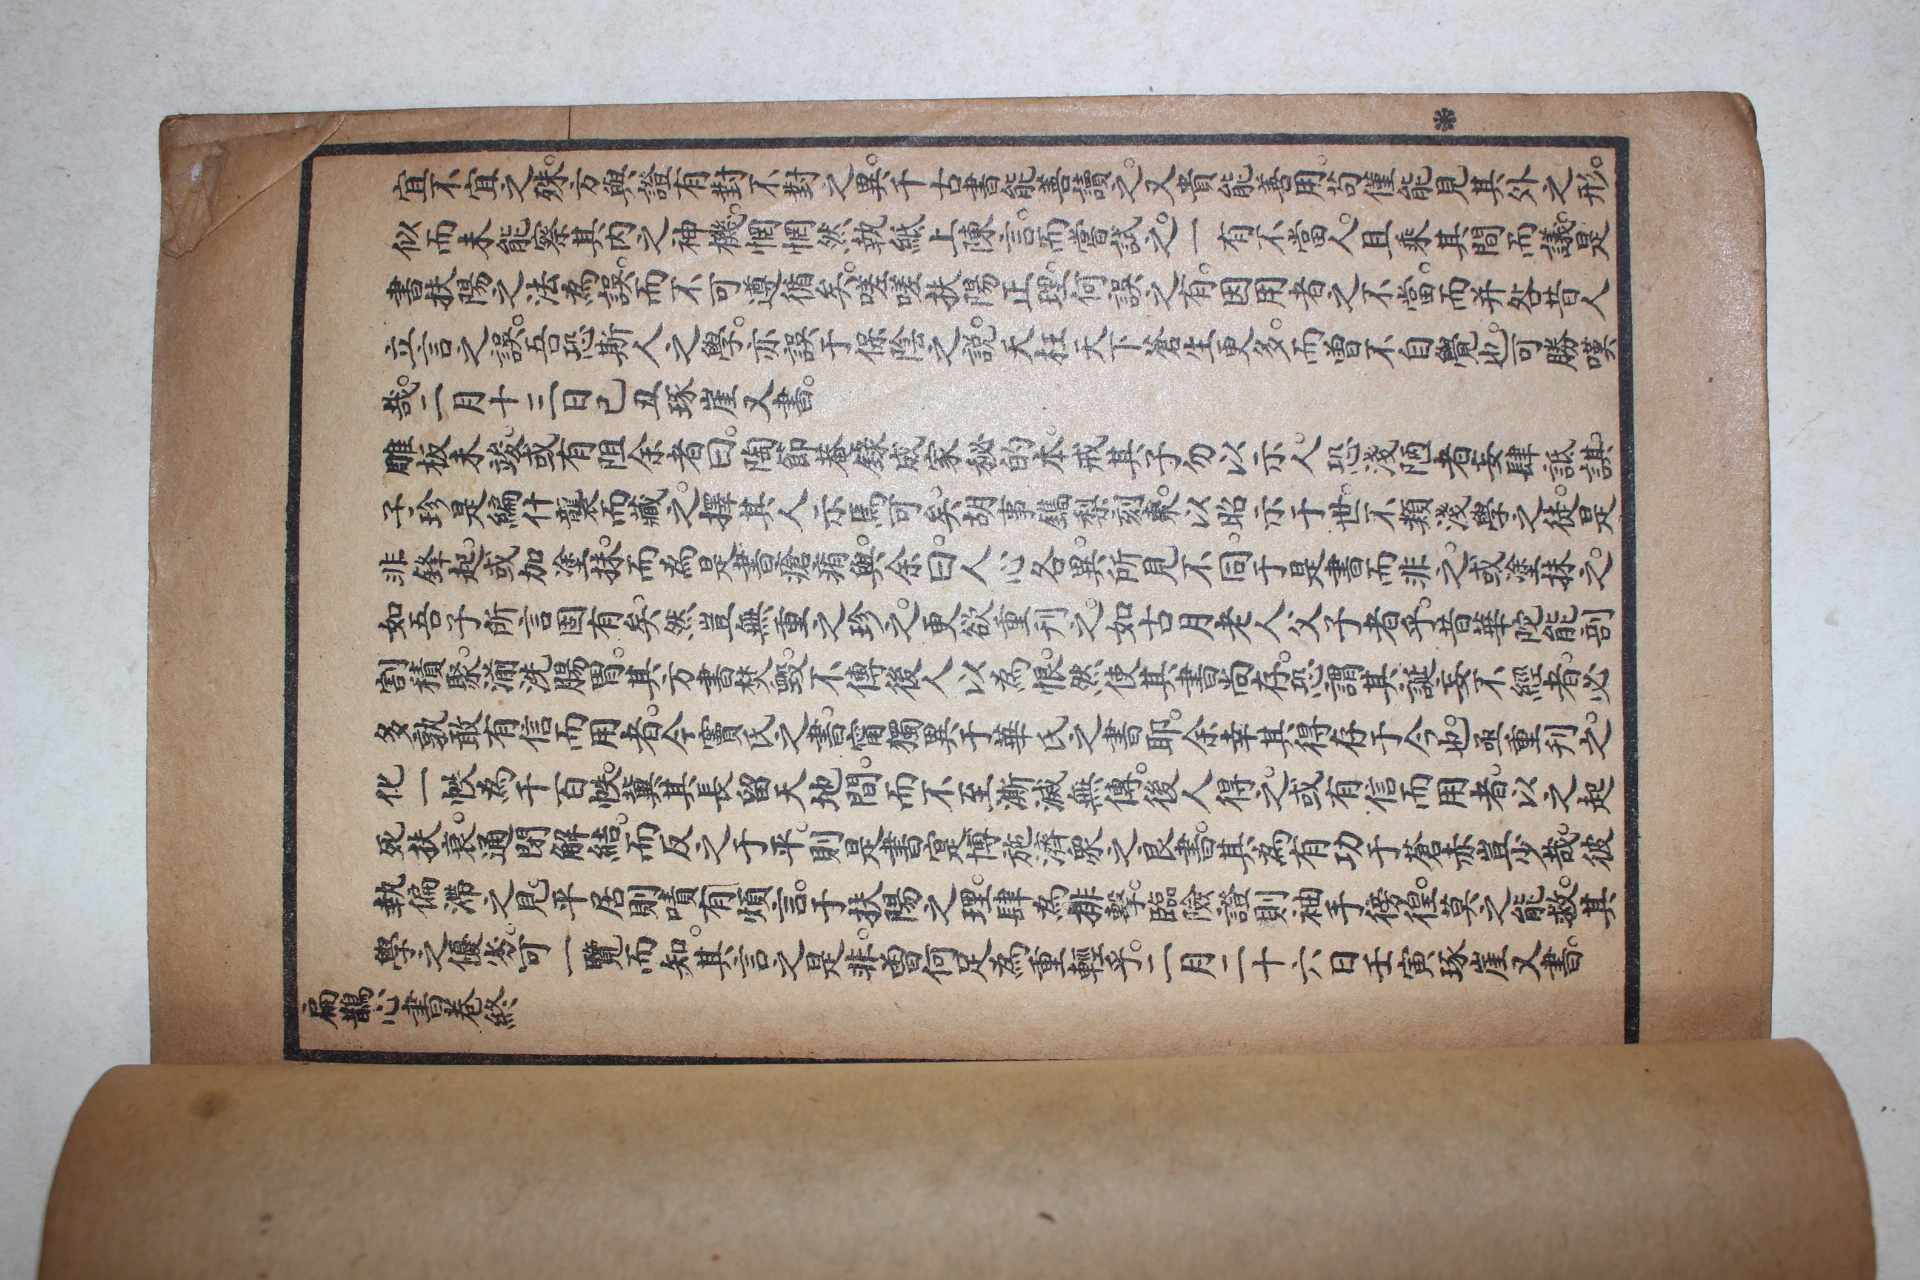 宜不宜之殊。方與證有對不對之異。千古書能善讀之。又貴能善用。尚僅能見其外之形。
似而未能察其內之神機。惘惘然執紙上陳言。而嘗試之。一有不當。人且乘其間而議。是
書扶陽之法為誤。而不可遵循矣。嗟嗟扶陽正理。何誤之有。因用者之不當。而并咎昔人
立言之誤。吾恐斯人之學。亦誤于保陰之說。夭枉天下蒼生更多。而曾不自覺也。可勝嘆
哉。二月十三日己丑琢崖又書。
雕板未竣。或有阻余者曰。陶節菴錄成家秘的本。戒其子勿以示人。恐淺陋者妄肆詆諆。
子珍是編。什襲而藏之。擇其人示焉可矣。胡事鐫梨刻棗。以昭示于世。不類淺學之徒。是
非鋒起。或加塗抹。而為是書瘡痏與。余曰。人心各異。所見不同。于是書而非之。或塗抹之。
如吾子所言固有矣。然豈無重之珍之。更欲重刊之。如古月老人父子者乎。昔華陀能刳
割積聚。湔洗腸胃。其方書焚毀不傳。後人以為恨。然使其書尚存。恐謂其誕妄不經者必
多。孰敢有信而用者。今竇氏之書。甯獨異于華氏之書耶。余幸其得存于今也。亟重刊之。
化一帙為千百帙。冀其長留天地間。而不至漸滅無傳。後人得之。或有信而用者。以之起
死扶衰。通閉解結。而反之于平。則是書寔博施濟眾之良書。其為有功于蒼赤豈少哉。彼
執偏滯之見。平居則嘖有煩言。于扶陽之理。肆為排擊。臨險證則袖手徬徨。莫之能救。其
學之優劣。可一覽而知。其言之是非。曾何足為重輕乎。二月二十六日壬寅琢崖又書。
扁鵲心書卷終